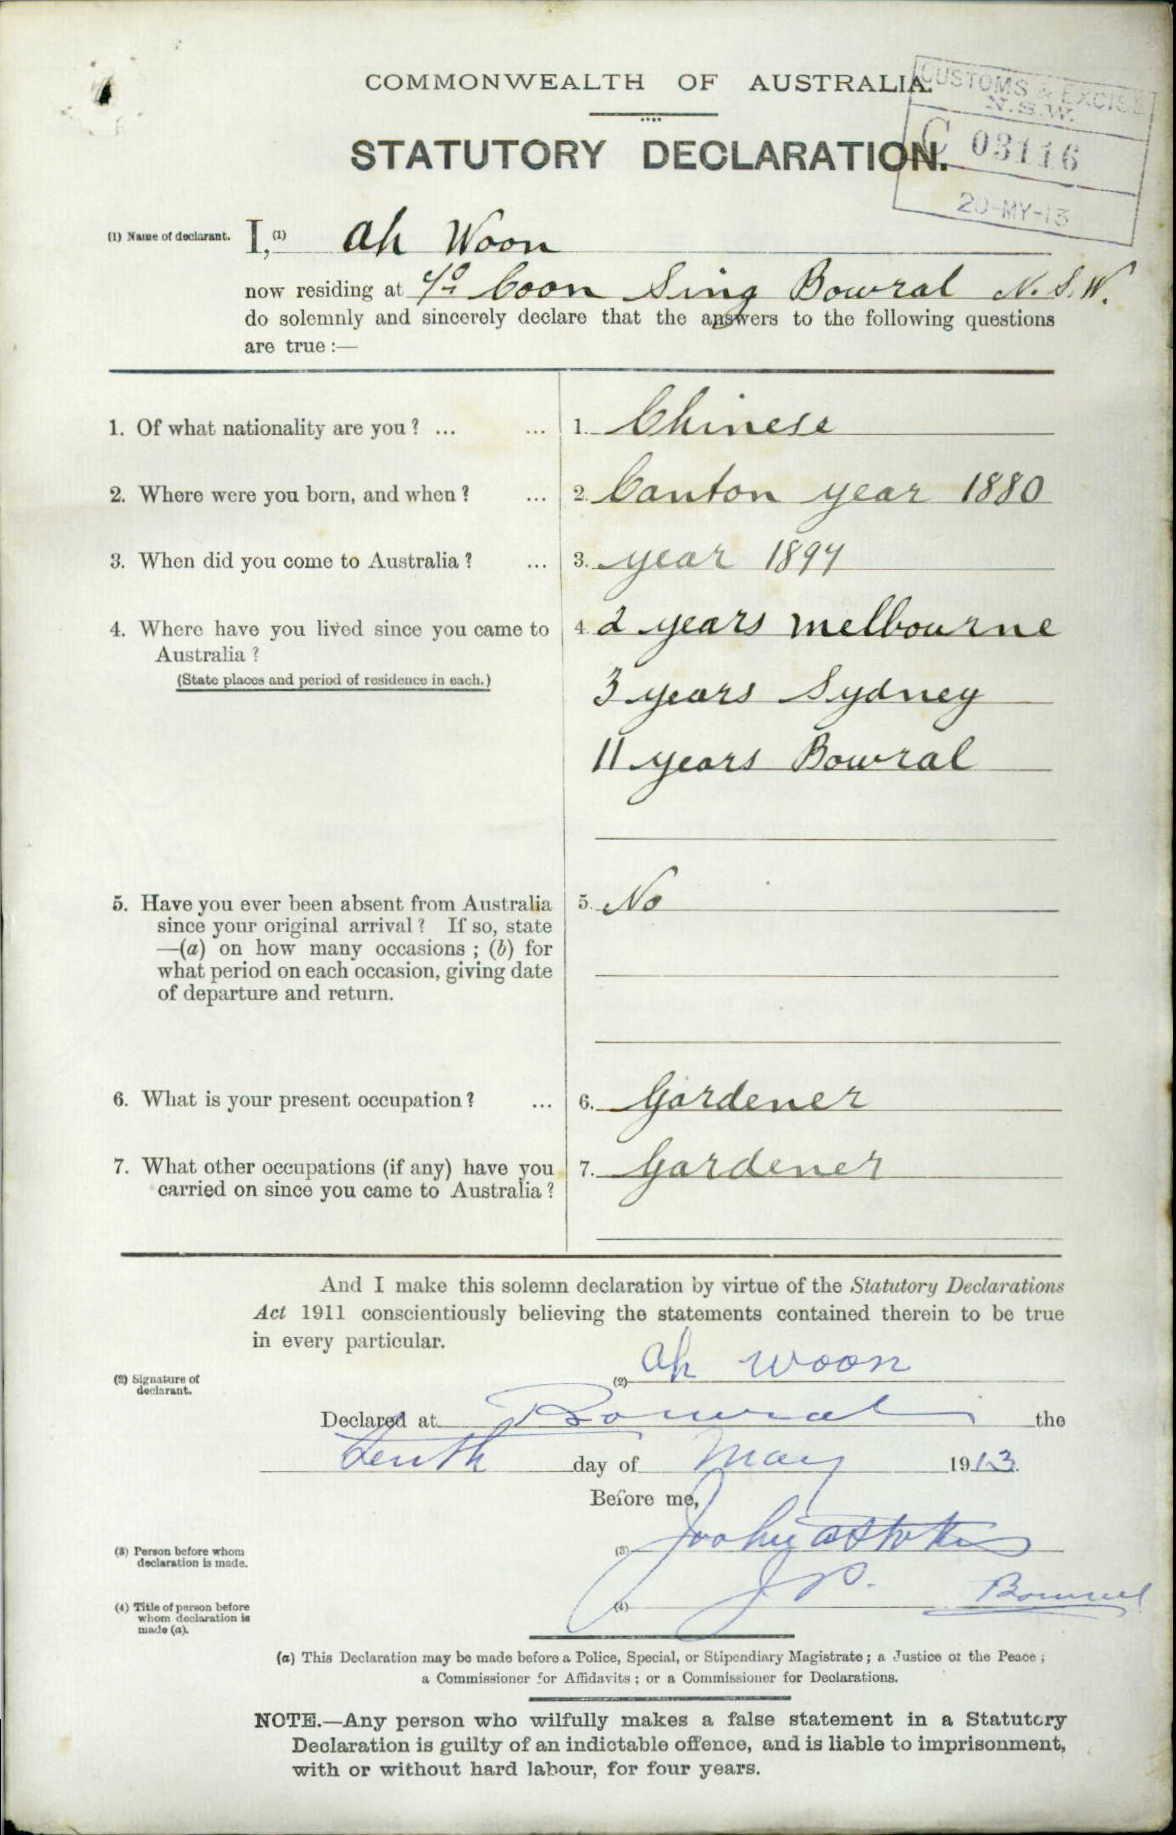 COMMONWEALTH OF AUSTRALIA.
CUSTOMS & EXCISE
N.S.W.
C 03116
20-MY-13
STATUTORY DECLARATION.
(1) Name of declarant. I, (1) Ah Woon
now residing at c/o Coon Sing Bowral N.S.W.
do solemnly and sincerely declare that the answers to the following questions
are true :—
1. Of what nationality are you ? ... ... 1. Chinese
2. Where were you born, and when ? ... 2. Canton year 1880
3. When did you come to Australia ? ... 3. year 1897
4. Where have you lived since you came to 4. 2 years Melbourne
Australia ?
(State places and period of residence in each.)
3 years Sydney
11 years Bowral
5. Have you ever been absent from Australia 5. No
since your original arrival ? If so, state
—(a) on how many occasions ; (b) for
what period on each occasion, giving date
of departure and return.
6. What is your present occupation ? ... 6. Gardener
7. What other occupations (if any) have you 7. Gardener
carried on since you came to Australia ?
And I make this solemn declaration by virtue of the Statutory Declarations
Act 1911 conscientiously believing the statements contained therein to be true
in every particular.
(2) Signature of
declarant.
(2) Ah Woon
Declared at Bowral the
tenth day of May 1913
Before me,
(3) Person before whom
declaration is made.
(3) Joshua Stokes
(4) Title of person before
whom declaration is
made (a).
(4) J P. Bowral
(a) This Declaration may be made before a Police, Special, or Stipendiary Magistrate ; a Justice of the Peace ;
a Commissioner for Affidavits ; or a Commissioner for Declarations.
NOTE.—Any person who wilfully makes a false statement in a Statutory
Declaration is guilty of an indictable offence, and is liable to imprisonment,
with or without hard labour, for four years.